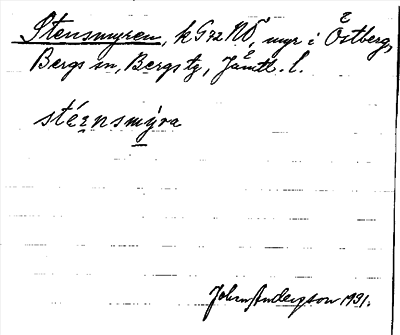 Stensmyren, k G 72 NÖ, myr i Östberg,
Bergs sn, Bergs tg, Jämtl. l.
stéensmýra
John Andersson 1931.